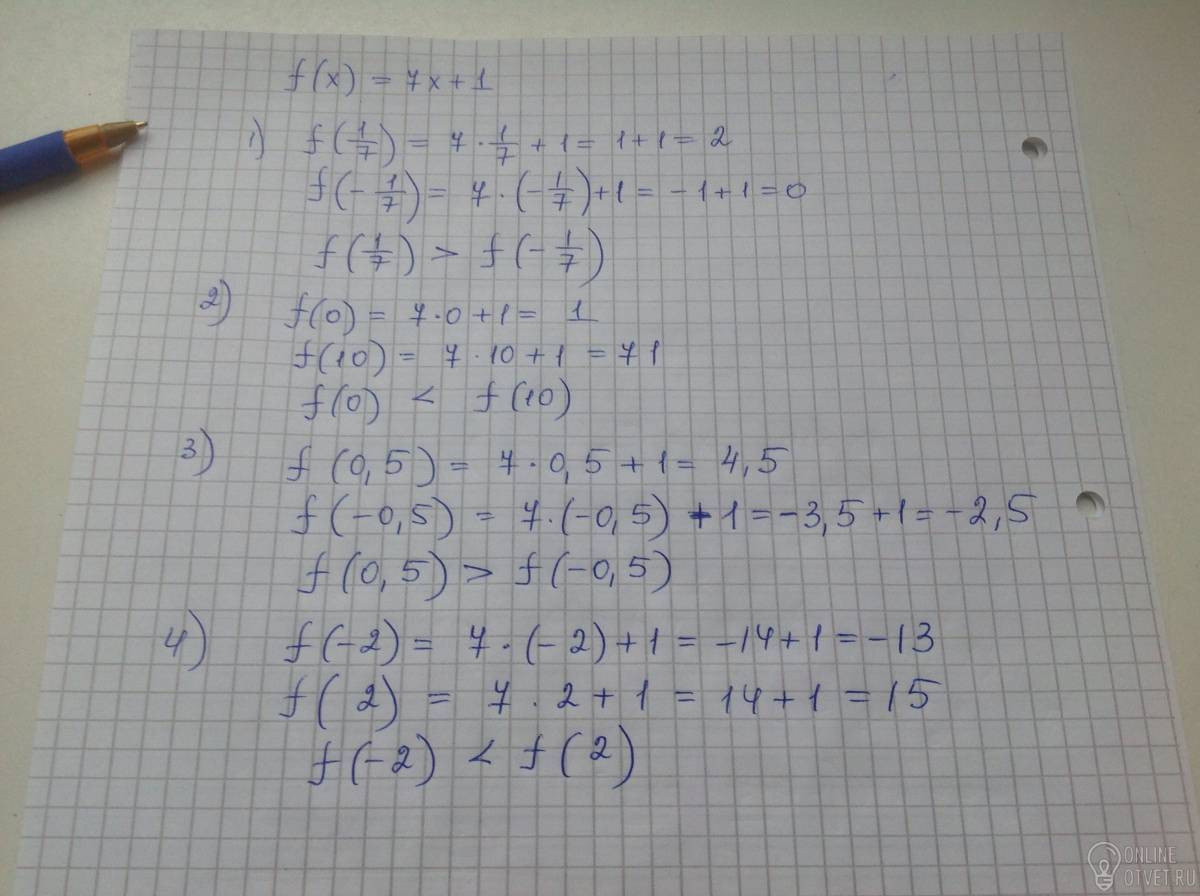 f(x) = 7x + 1
1) f(1/7) = 7 · 1/7 + 1 = 1 + 1 = 2
f(-1/7) = 7 · (-1/7) + 1 = -1 + 1 = 0
f(1/7) > f(-1/7)
2) f(0) = 7 · 0 + 1 = 1
f(10) = 7 · 10 + 1 = 71
f(0) < f(10)
3) f(0,5) = 7 · 0,5 + 1 = 4,5
f(-0,5) = 7 · (-0,5) + 1 = -3,5 + 1 = -2,5
f(0,5) > f(-0,5)
4) f(-2) = 7 · (-2) + 1 = -14 + 1 = -13
f(2) = 7 · 2 + 1 = 14 + 1 = 15
f(-2) < f(2)
ONLINE
OTVET.RU